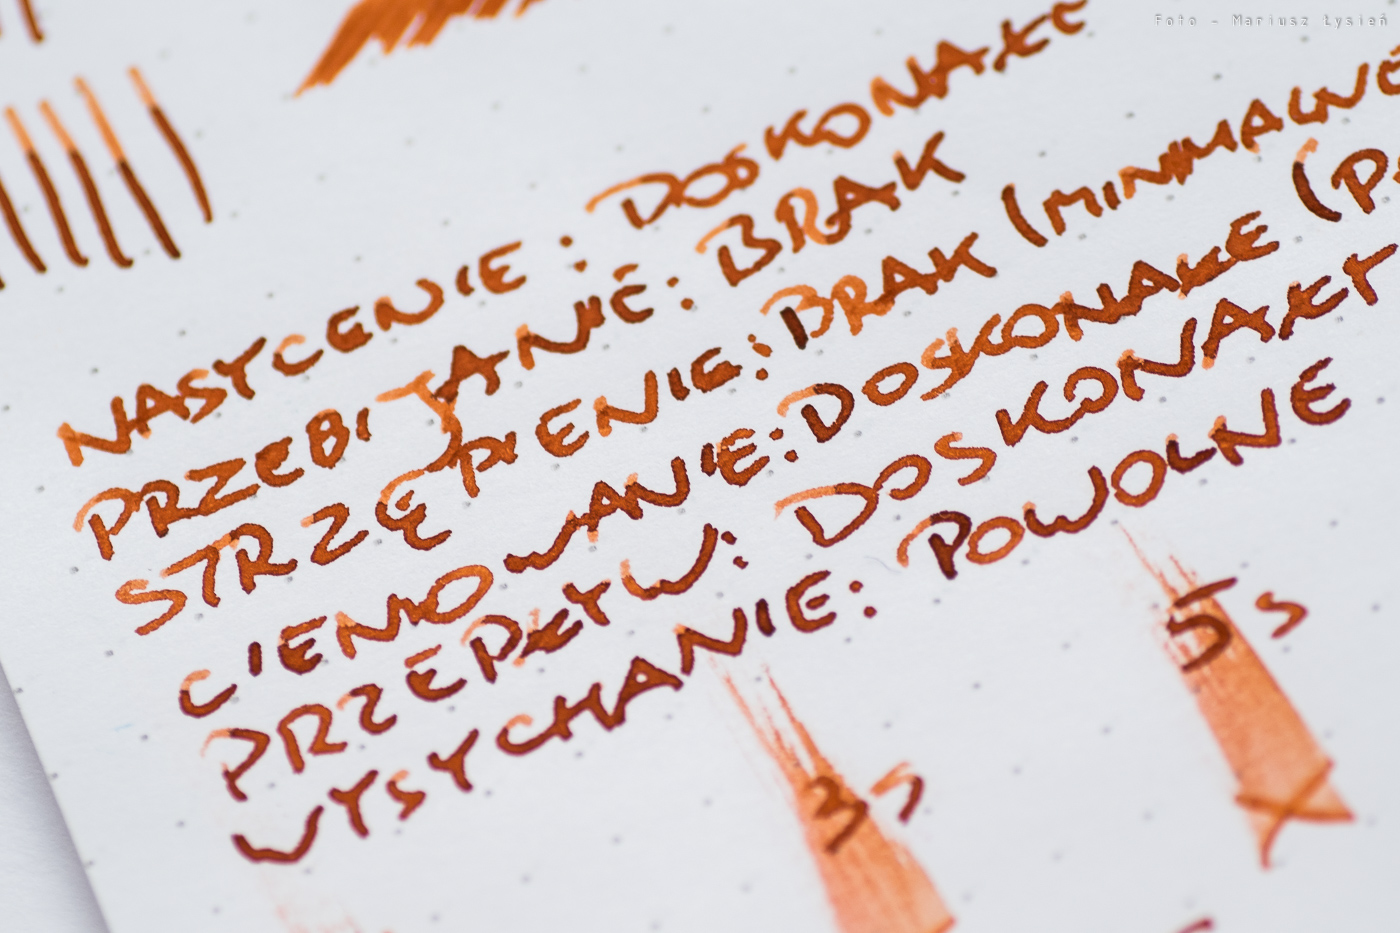 Foto - Mariusz Łysień
NASYCENIE: DOSKONAŁE
PRZEBIJANIE: BRAK
STRZĘPIENIE: BRAK (MINIMALNE
CIENIOWANIE: DOSKONAŁE
PRZEPŁYW: DOSKONAŁY
WYSYCHANIE: POWOLNE
5s
3s